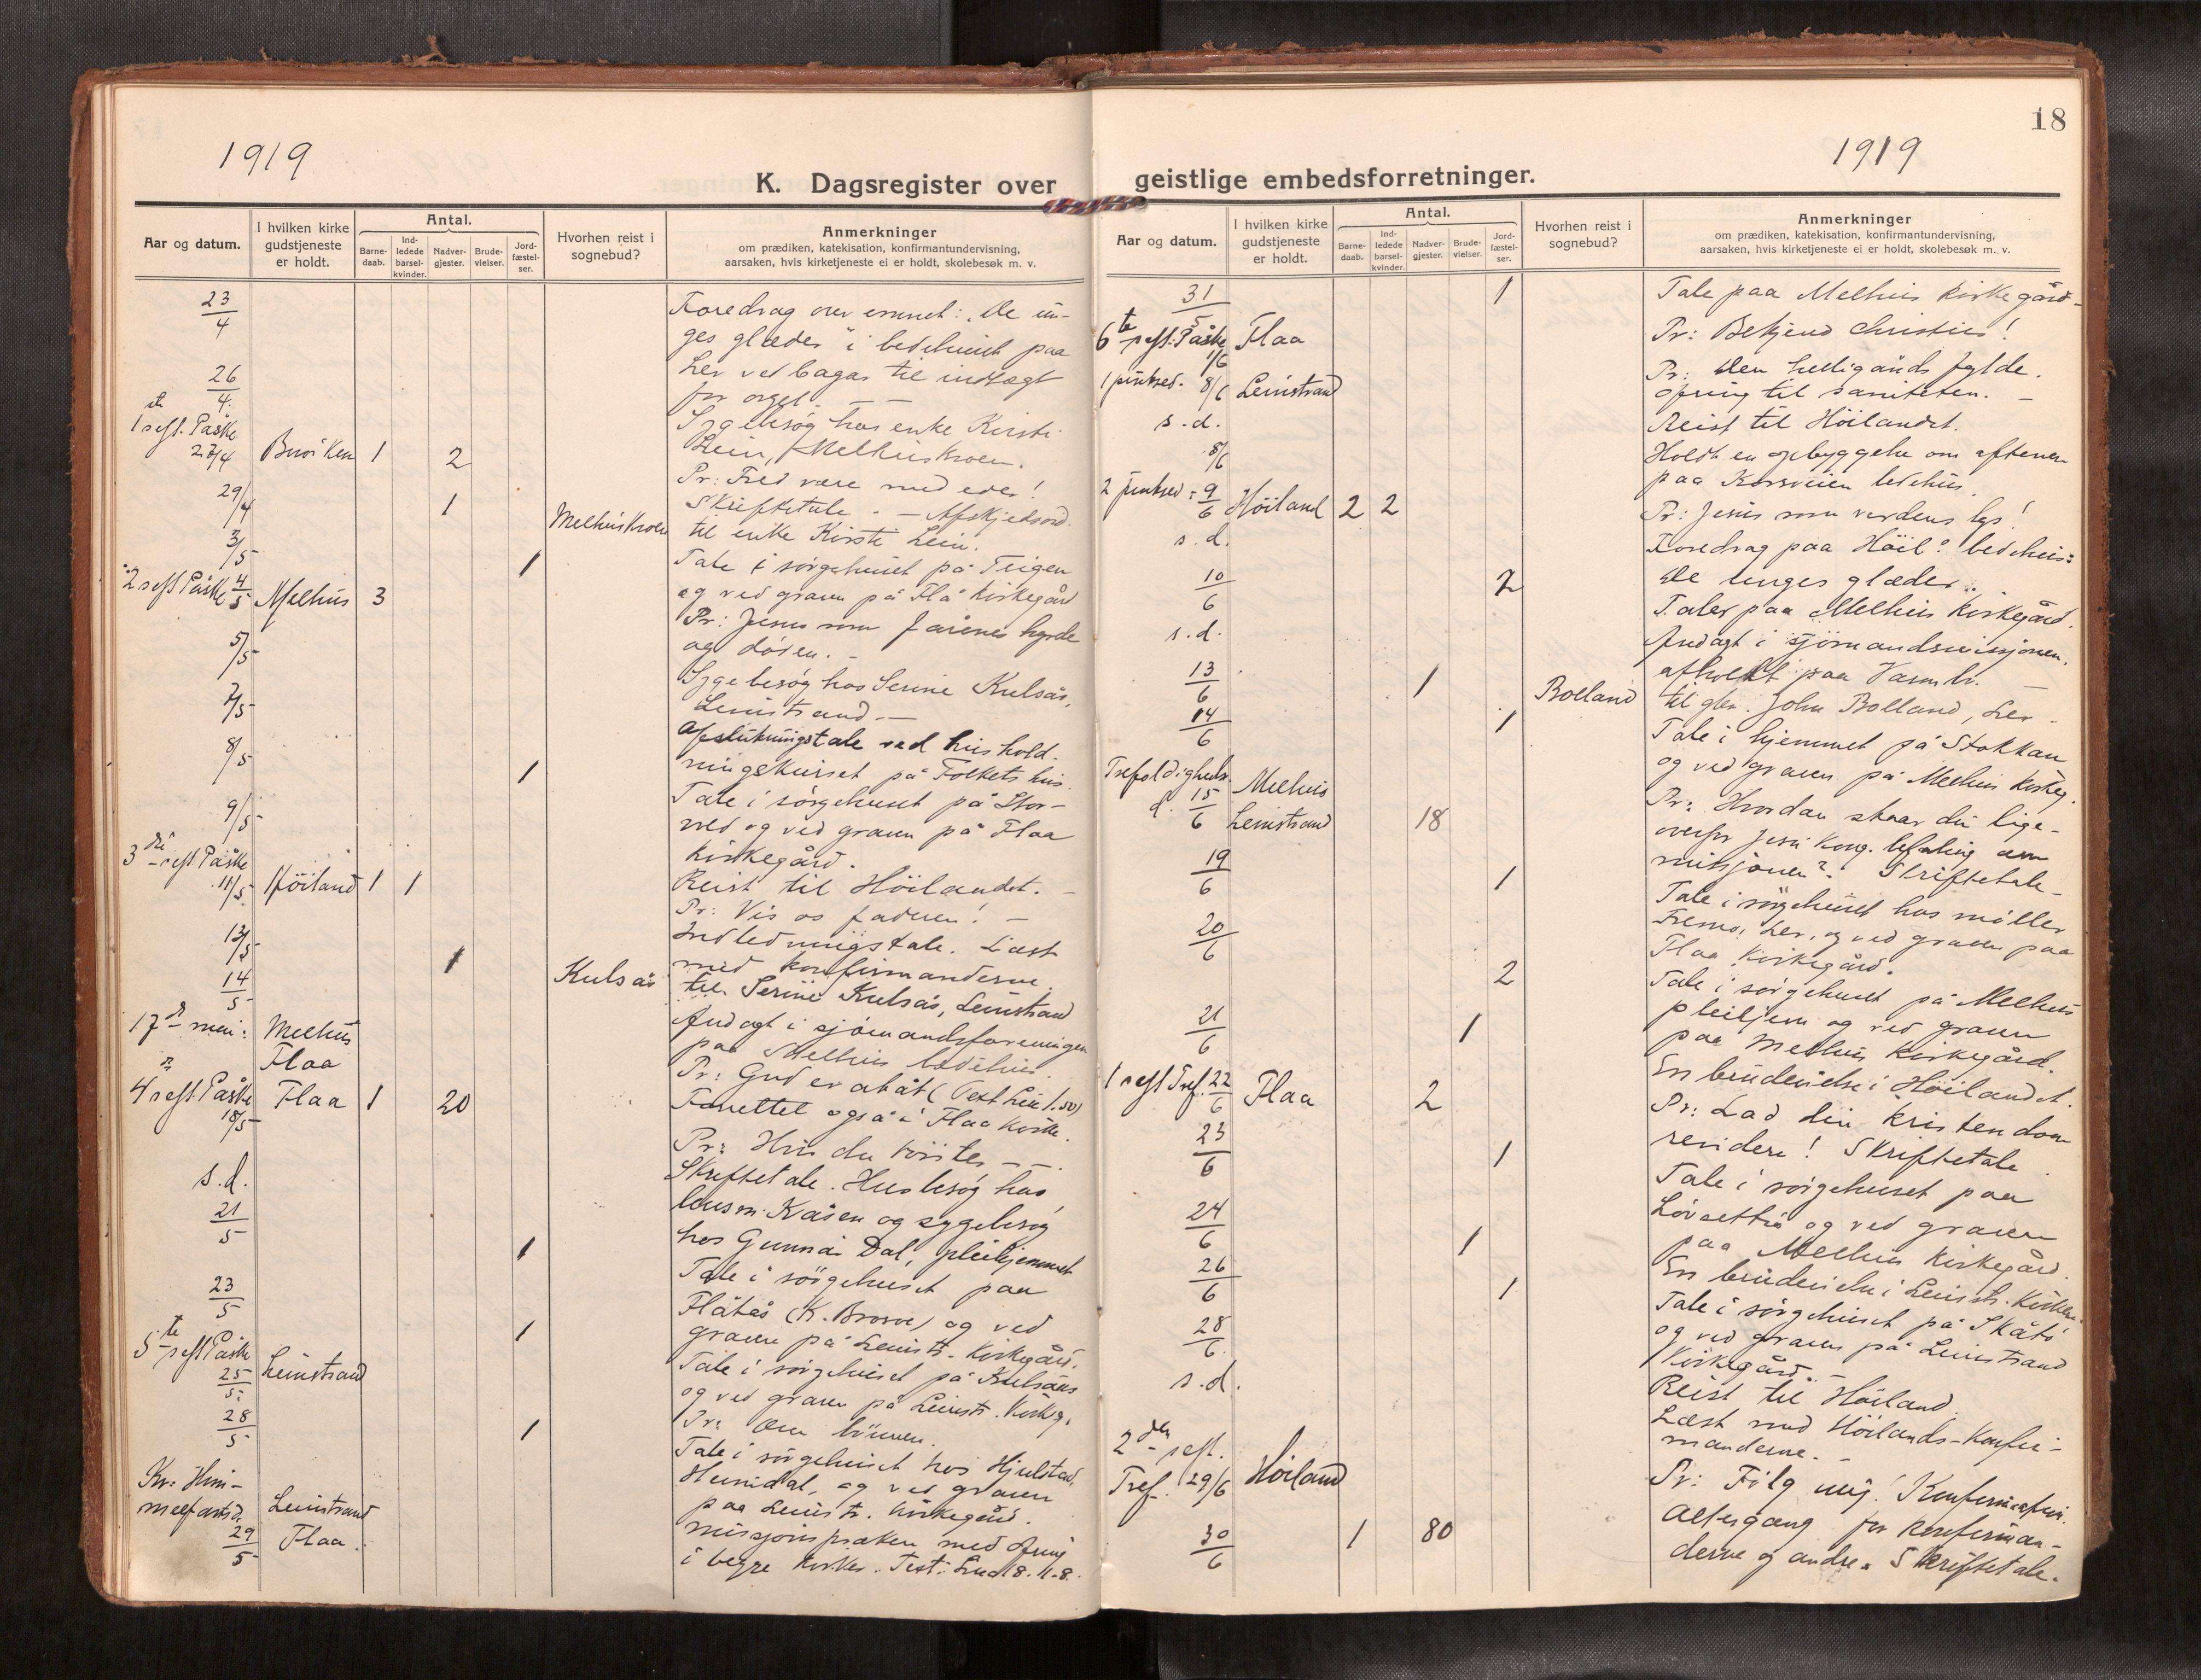 1919
K. Dagsregister over
Aar og datum.
I hvilken kirke gudstjeneste er holdt.
Antal.
Barne-daab.
Ind-ledede barsel-kvinder.
Nadver-gjester.
Brude-vielser.
Jord-fæstel-ser.
Hvorhen reist i sognebud?
Anmerkninger
om prædiken, katekisation, konfirmantundervisning,
aarsaken, hvis kirketjeneste ei er holdt, skolebesøk m. v.
23/4 Foredrag over emnet: „De un-
ges glæder" i bedehuset paa
Ler ved bagar til indtægt
for orgel.
26/4 Sygebesøg hos enke Kirsti
Lein, Melhuskroen.
1 s. eft. Påske 27/4 Buviken 1 2 Pr: Fred være med eder!
Skriftetale. - Afskjedsord.
29/4 1 Melhuskroen til enke Kirsti Lein.
3/5 1 Tale i sørgehuset på Teigen
og ved graven på Flå kirkegård
2 s. eft Påske 4/5 Melhus 3 Pr: Jesus som fårenes hyrde
og døren. -
5/5 Sygebesøg hos Serine Kulsås,
Leinstrand. -
7/5 Afslutningstale ved hushold-
ningskurset på Folkets hus.
8/5 1 Tale i sørgehuset på
og ved graven på Flaa
kirkegård.
9/5 Reist til Höilandet. -
3die s. eft Påske 11/5 Höiland 1 1 Pr: Vis os faderen! -
Indledningstale. Læst
med konfirmanderne.
13/5 1 Kulsås til Serine Kulsås, Leinstrand
14/5 Andagt i sjömandsforeningen
paa Melhus bedehus.
17de mai: Melhus
Flaa
Pr: Gud er
Forrettet også i Flaa kirke.
4 s. eft Påske 18/5 Flaa 1 20 Pr:
Skriftetale. Husbesøg hos
s.d.
lensm. Kåsen og sygebesøg
hos Gunnar Dal, pleihjemmet
21/5 1 Tale i sörgehuset paa
Flåtås (K. ) og ved
graven på Leinstr. kirkegård.
23/5 1 Tale i sörgehuset på Kulsåas
og ved graven på Leinstr. kirkeg.
5te s. eft Påske 25/5 Leinstrand Pr: Om bönnen.
28/5 1 Tale i sörgehuset hos Hjulstad,
Heimdal, og ved graven
paa Leinstr. kirkegård.
Kr: Him-
melfartsd. 29/5 Leinstrand
Flaa.
missjonspræken med ofring
i begge kirker. Text:
18
1919
geistlige embedsforretninger.
Aar og datum.
I hvilken kirke gudstjeneste er holdt.
Antal.
Barne-daab.
Ind-ledede barsel-kvinder.
Nadver-gjester.
Brude-vielser.
Jord-fæstel-ser.
Hvorhen reist i sognebud?
Anmerkninger
om prædiken, katekisation, konfirmantundervisning,
aarsaken, hvis kirketjeneste ei er holdt, skolebesøk m. v.
31/5 1 Tale paa Melhus kirkegård-
6te s. eft. Påske 1/6 Flaa Pr: Bekjend Christus!
1 pintsed. 8/6 Leinstrand Pr: Den helligånds fylde.
ofring til saniteten. -
s.d. Reist til Höilandet.
8/6 Holdt en opbyggelse om aftenen
paa Korsveien bedehus.
2 pintsed: 9/6 Höiland 2 2 Pr: Jesus som verdens lys!
s.d. Foredrag paa Höil. bedehus:
De unges glæder.
10/6 2 Taler paa Melhus kirkegård.
s.d. Andagt i sjömandsmissjonen,
afholdt paa Varmbo.
13/6 1 Bolland til gbr. John Bolland, Ler.
14/6 1 Tale i hjemmet på Stokkan
og ved graven på Melhus kirkeg.
Trefoldigheds-
d. 15/6 Melhus
Leinstrand 18
Pr: Hvordan staar du lige-
overfor Jesu Kong. befaling om
missjonen? Skriftetale-
19/6 1 Tale i sörgehuset hos möller
Fremo, Ler, og ved graven paa
Flaa kirkegård.
20/6 2 Tale i sörgehuset på Melhus
pleihjem og ved graven
paa Melhus kirkegård.
21/6 1 En brudevielse i Höilandet.
1 s. eft Tref. 22/6 Flaa 2 Pr: Lad din kristendom
revidere! Skriftetale.
23/6 1 Tale i sörgehuset paa
Lövsettrø og ved graven
paa Melhus kirkegård.
24/6 1 En brudevielse i Leinstr. kirke.
26/6 1 Tale i sörgehuset på
og ved graven på Leinstrand
kirkegård.
28/6 Reist til Höiland.
s.d. Læst med Höilands-konfir-
manderne. -
2den s. eft.
Tref. 29/6 Höiland Pr: Fölg mig! Konfirmation.
30/6 1 80 Altergang for konfirman-
derne og andre. Skriftetale.